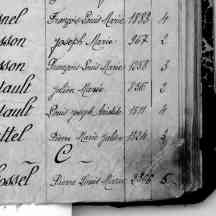 nel François Louis Marie 1883 4
sson Joseph Marie 967 2
sson François Louis Marie 1088 3
tault Julien Marie 896 2
tault Louis Joseph Aristide 1511 4
ttel Pierre Marie Julien 1324 3
C
ossel Pierre Louis Marie 2306 5